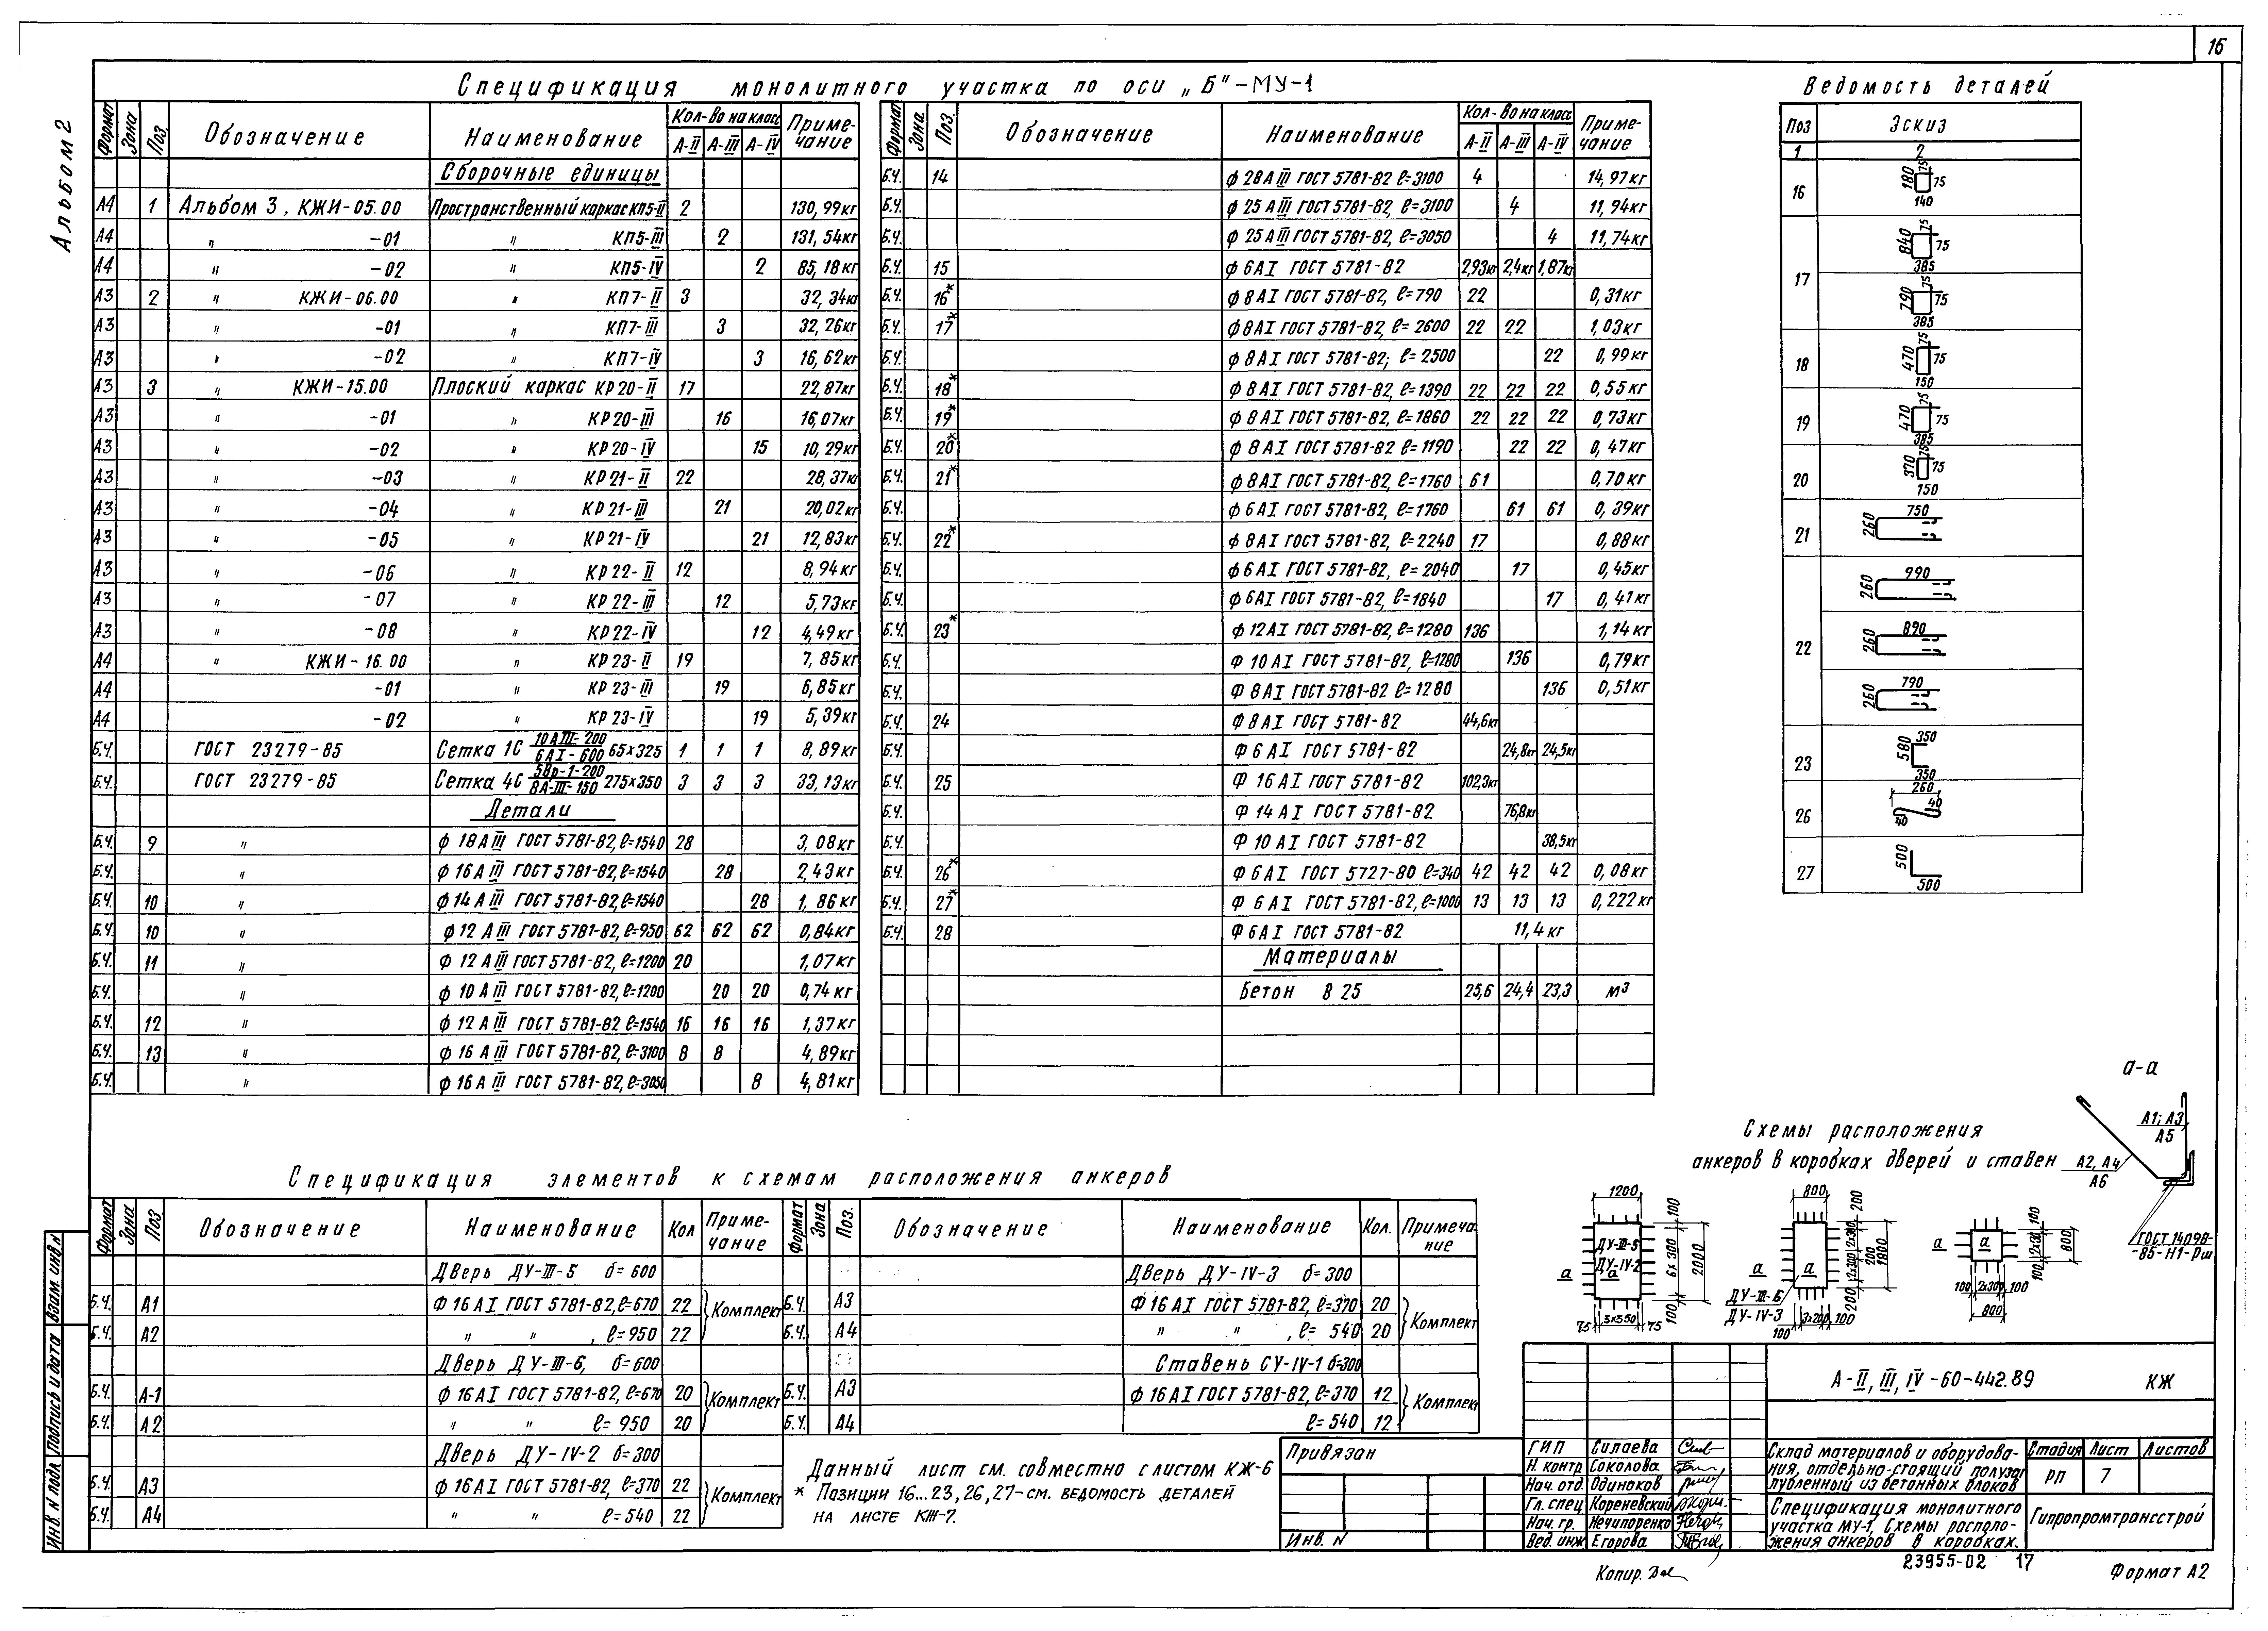 16
Альбом 2
Спецификация монолитного участка по оси „Б"-МУ-1
Формат Зона Поз. Обозначение Наименование Кол-во на класс Приме-чание
А-II А-III А-IV
Сборочные единицы
А4 1 Альбом 3, КЖИ-05.00 Пространственный каркас КП5-II 2 130,99кг
А4 " -01 " КП5-III 2 131,54кг
А4 " -02 " КП5-IV 2 85,18кг
А3 2 " КЖИ-06.00 " КП7-II 3 32,34кг
А3 " -01 " КП7-III 3 32,26кг
А3 " -02 " КП7-IV 3 16,62кг
А3 3 " КЖИ-15.00 Плоский каркас КР20-II 17 22,87кг
А3 " -01 " КР20-III 16 16,07кг
А3 " -02 " КР20-IV 15 10,29кг
А3 " -03 " КР21-II 22 28,37кг
А3 " -04 " КР21-III 21 20,02кг
А3 " -05 " КР21-IV 21 12,83кг
А3 " -06 " КР22-II 12 8,94кг
А3 " -07 " КР22-III 12 5,73кг
А3 " -08 " КР22-IV 12 4,49кг
А4 " КЖИ-16.00 " КР23-II 19 7,85кг
А4 -01 " КР23-III 19 6,85кг
А4 -02 " КР23-IV 19 5,39кг
Б.Ч. ГОСТ 23279-85 Сетка 1С 10АIII-200/6АI-600 65х325 1 1 1 8,89кг
Б.Ч. ГОСТ 23279-85 Сетка 4С 5Вр-1-200/8А-III-150 275х350 3 3 3 33,13кг
Детали
Б.Ч. 9 " ф 18АIII ГОСТ 5781-82, ℓ=1540 28 3,08кг
Б.Ч. " ф 16АIII ГОСТ 5781-82, ℓ=1540 28 2,43кг
Б.Ч. 10 " ф 14АIII ГОСТ 5781-82, ℓ=1540 28 1,86кг
Б.Ч. 10 " ф 12АIII ГОСТ 5781-82, ℓ=950 62 62 62 0,84кг
Б.Ч. 11 " ф 12АIII ГОСТ 5781-82, ℓ=1200 20 1,07кг
Б.Ч. " ф 10АIII ГОСТ 5781-82, ℓ=1200 20 20 0,74кг
Б.Ч. 12 " ф 12АIII ГОСТ 5781-82 ℓ=1540 16 16 16 1,37кг
Б.Ч. 13 " ф 16АIII ГОСТ 5781-82, ℓ=3100 8 8 4,89кг
Б.Ч. " ф 16АIII ГОСТ 5781-82, ℓ=3050 8 4,81кг
Формат Зона Поз. Обозначение Наименование Кол-во на класс Приме-чание
А-II А-III А-IV
Б.Ч. 14 ф 28АIII ГОСТ 5781-82 ℓ=3100 4 14,97кг
Б.Ч. ф 25АIII ГОСТ 5781-82, ℓ=3100 4 11,94кг
Б.Ч. ф 25АIII ГОСТ 5781-82, ℓ=3050 4 11,74кг
Б.Ч. 15 ф 6АI ГОСТ 5781-82 2,93кг 2,4кг 1,87кг
Б.Ч. 16* ф 8АI ГОСТ 5781-82, ℓ=790 22 0,31кг
Б.Ч. 17* ф 8АI ГОСТ 5781-82, ℓ=2600 22 22 1,03кг
ф 8АI ГОСТ 5781-82; ℓ=2500 22 0,99кг
Б.Ч. 18* ф 8АI ГОСТ 5781-82, ℓ=1390 22 22 22 0,55кг
Б.Ч. 19* ф 8АI ГОСТ 5781-82, ℓ=1860 22 22 22 0,73кг
Б.Ч. 20* ф 8АI ГОСТ 5781-82 ℓ=1190 22 22 0,47кг
Б.Ч. 21* ф 8АI ГОСТ 5781-82, ℓ=1760 61 0,70кг
Б.Ч. ф 6АI ГОСТ 5781-82, ℓ=1760 61 61 0,39кг
Б.Ч. 22* ф 8АI ГОСТ 5781-82, ℓ=2240 17 0,88кг
Б.Ч. ф 6АI ГОСТ 5781-82, ℓ=2040 17 0,45кг
Б.Ч. ф 6АI ГОСТ 5781-82, ℓ=1840 17 0,41кг
Б.Ч. 23* ф 12АI ГОСТ 5781-82, ℓ=1280 136 1,14кг
Б.Ч. ф 10АI ГОСТ 5781-82, ℓ=1280 136 0,79кг
Б.Ч. ф 8АI ГОСТ 5781-82 ℓ=1280 136 0,51кг
Б.Ч. 24 ф 8АI ГОСТ 5781-82 44,6кг
Б.Ч. ф 6АI ГОСТ 5781-82 24,8кг 24,5кг
Б.Ч. 25 ф 16АI ГОСТ 5781-82 102,3кг
Б.Ч. ф 14АI ГОСТ 5781-82 76,8кг
Б.Ч. ф 10АI ГОСТ 5781-82 38,5кг
Б.Ч. 26* ф 6АI ГОСТ 5727-80 ℓ=340 42 42 42 0,08кг
Б.Ч. 27* ф 6АI ГОСТ 5781-82, ℓ=1000 13 13 13 0,222кг
Б.Ч. 28 ф 6АI ГОСТ 5781-82 11,4 кг
Материалы
Бетон В 25 25,6 24,4 23,3 м³
Ведомость деталей
Поз Эскиз
1 2
16 180 75 75 140
17 840 75 75 385
790 75 75 385
18 470 75 75 150
19 470 75 75 385
20 370 75 75 150
21 260 750
22 260 990
260 890
260 790
23 580 350 350
26 260 40 40
27 500 500
а-а
А1; А3
А5
А2, А4
А6
ГОСТ 14098-
-85-Н1-Рш
Схемы расположения
анкеров в коробках дверей и ставен
1200 100 6х300 2000 100 75 3х350 75 ДУ-III-5 ДУ-IV-2 а а
800 200 2х300 200 2х300 1800 200 100 3х200 100 ДУ-III-6 ДУ-IV-3 а а
100 2х300 100 800 100 2х300 100 800 а а
Спецификация элементов к схемам расположения анкеров
Формат Зона Поз Обозначение Наименование Кол Приме-чание
Дверь ДУ-III-5 б=600
Б.Ч. А1 ф 16АI ГОСТ 5781-82, ℓ=670 22 Комплект
Б.Ч. А2 " " , ℓ=950 22
Дверь ДУ-III-6, б=600
Б.Ч. А-1 ф 16АI ГОСТ 5781-82, ℓ=670 20 Комплект
Б.Ч. А2 " " ℓ=950 20
Дверь ДУ-IV-2 б=300
Б.Ч. А3 ф 16АI ГОСТ 5781-82, ℓ=370 22 Комплект
Б.Ч. А4 " " ℓ=540 22
Формат Зона Поз. Обозначение Наименование Кол. Примеча-ние
Дверь ДУ-IV-3 б=300
Б.Ч. А3 ф 16АI ГОСТ 5781-82, ℓ=370 20 Комплект
Б.Ч. А4 " " , ℓ=540 20
Ставень СУ-IV-1 б=300
Б.Ч. А3 ф 16АI ГОСТ 5781-82, ℓ=370 12 Комплект
Б.Ч. А4 ℓ=540 12
Данный лист см. совместно с листом КЖ-6
* Позиции 16...23, 26, 27-см. ведомость деталей
на листе КЖ-7.
Привязан
Инв. N
ГИП Силаева
Н. контр Соколова
Нач. отд. Одиноков
Гл. спец Кореневский
Нач. гр. Нечипоренко
Вед. инж Егорова
А-II, III, IV-60-442.89 КЖ
Склад материалов и оборудова-
ния, отдельно-стоящий полузаг
лубленный из бетонных блоков
Стадия Лист Листов
РП 7
Спецификация монолитного
участка МУ-1, Схемы располо-
жения анкеров в коробках.
Гипропромтрансстрой
23955-02 17
Копир.
Формат А2
Инв. N подл. Подпись и дата Взам. инв. N